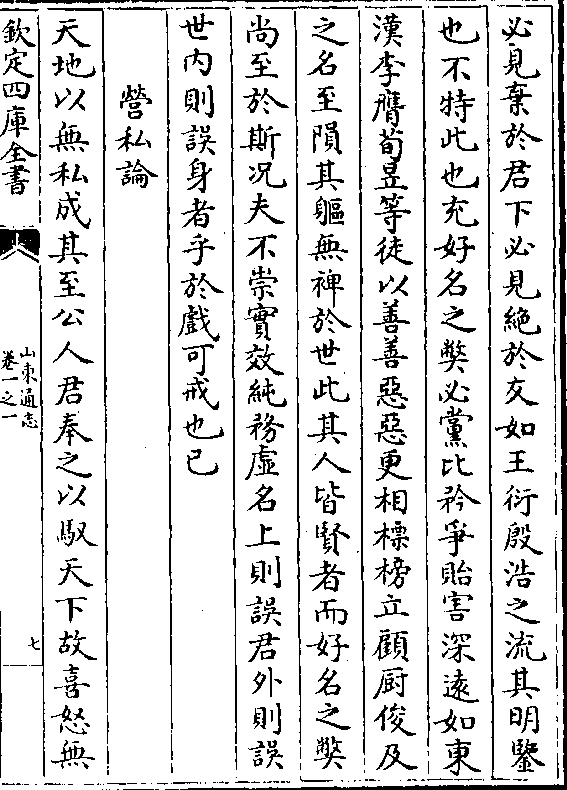 必見棄於君下必見絶於友如王衍殷浩之流其明鑒
也不特此也充好名之弊必黨比矜爭貽害深遠如東
漢李膺荀昱等徒以善善惡惡更相標榜立顧厨俊及
之名至隕其軀無裨於世此其人皆賢者而好名之弊
尚至於斯况夫不崇實效純務虛名上則誤君外則誤
世内則誤身者乎於戲可戒也已
營私論
天地以無私成其至公人君奉之以馭天下故喜怒無
欽定四庫全書
山東通志
卷一之一
七